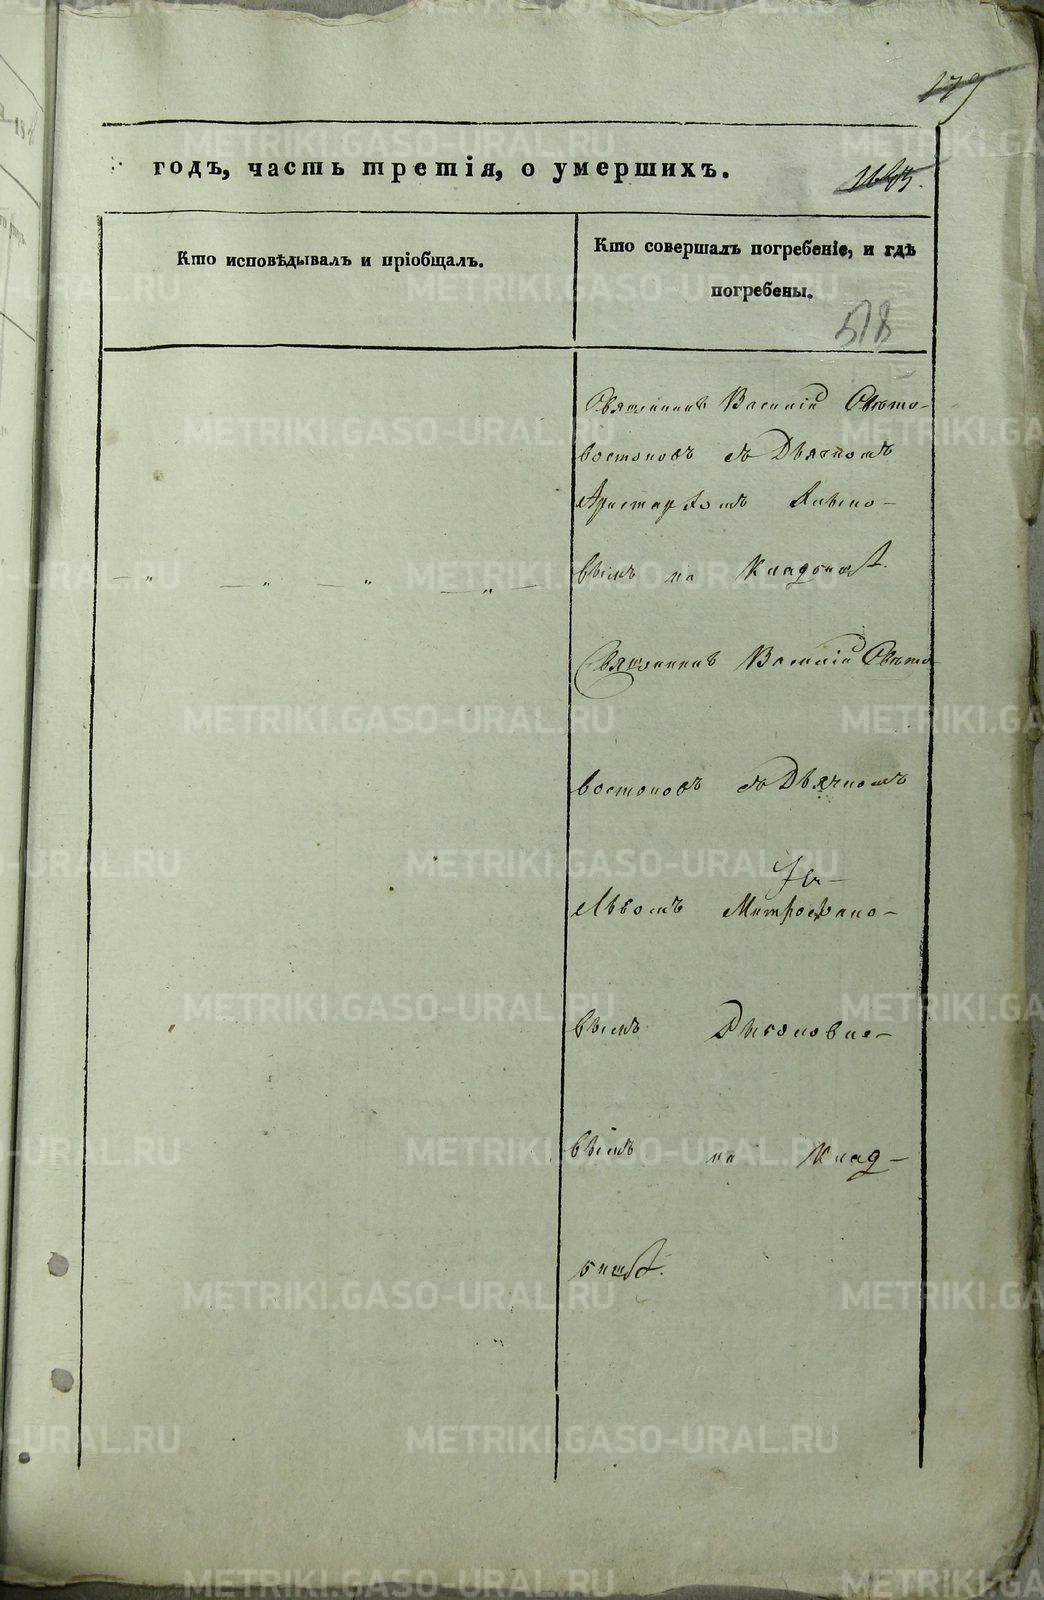 179
годъ, часть третія, о умершихъ.
Кто исповѣдывалъ и пріобщалъ.
Кто совершалъ погребеніе, и гдѣ
погребены.
518
Священникъ Василій Свѣто-
востоковъ съ Дьячкомъ
Аристархомъ
вымъ на Кладбищѣ.
Священникъ Василій Свѣто-
востоковъ съ Дьячкомъ
Львомъ Митрофано-
вымъ
вымъ на Клад-
бищѣ.
METRIKI.GASO-URAL.RU